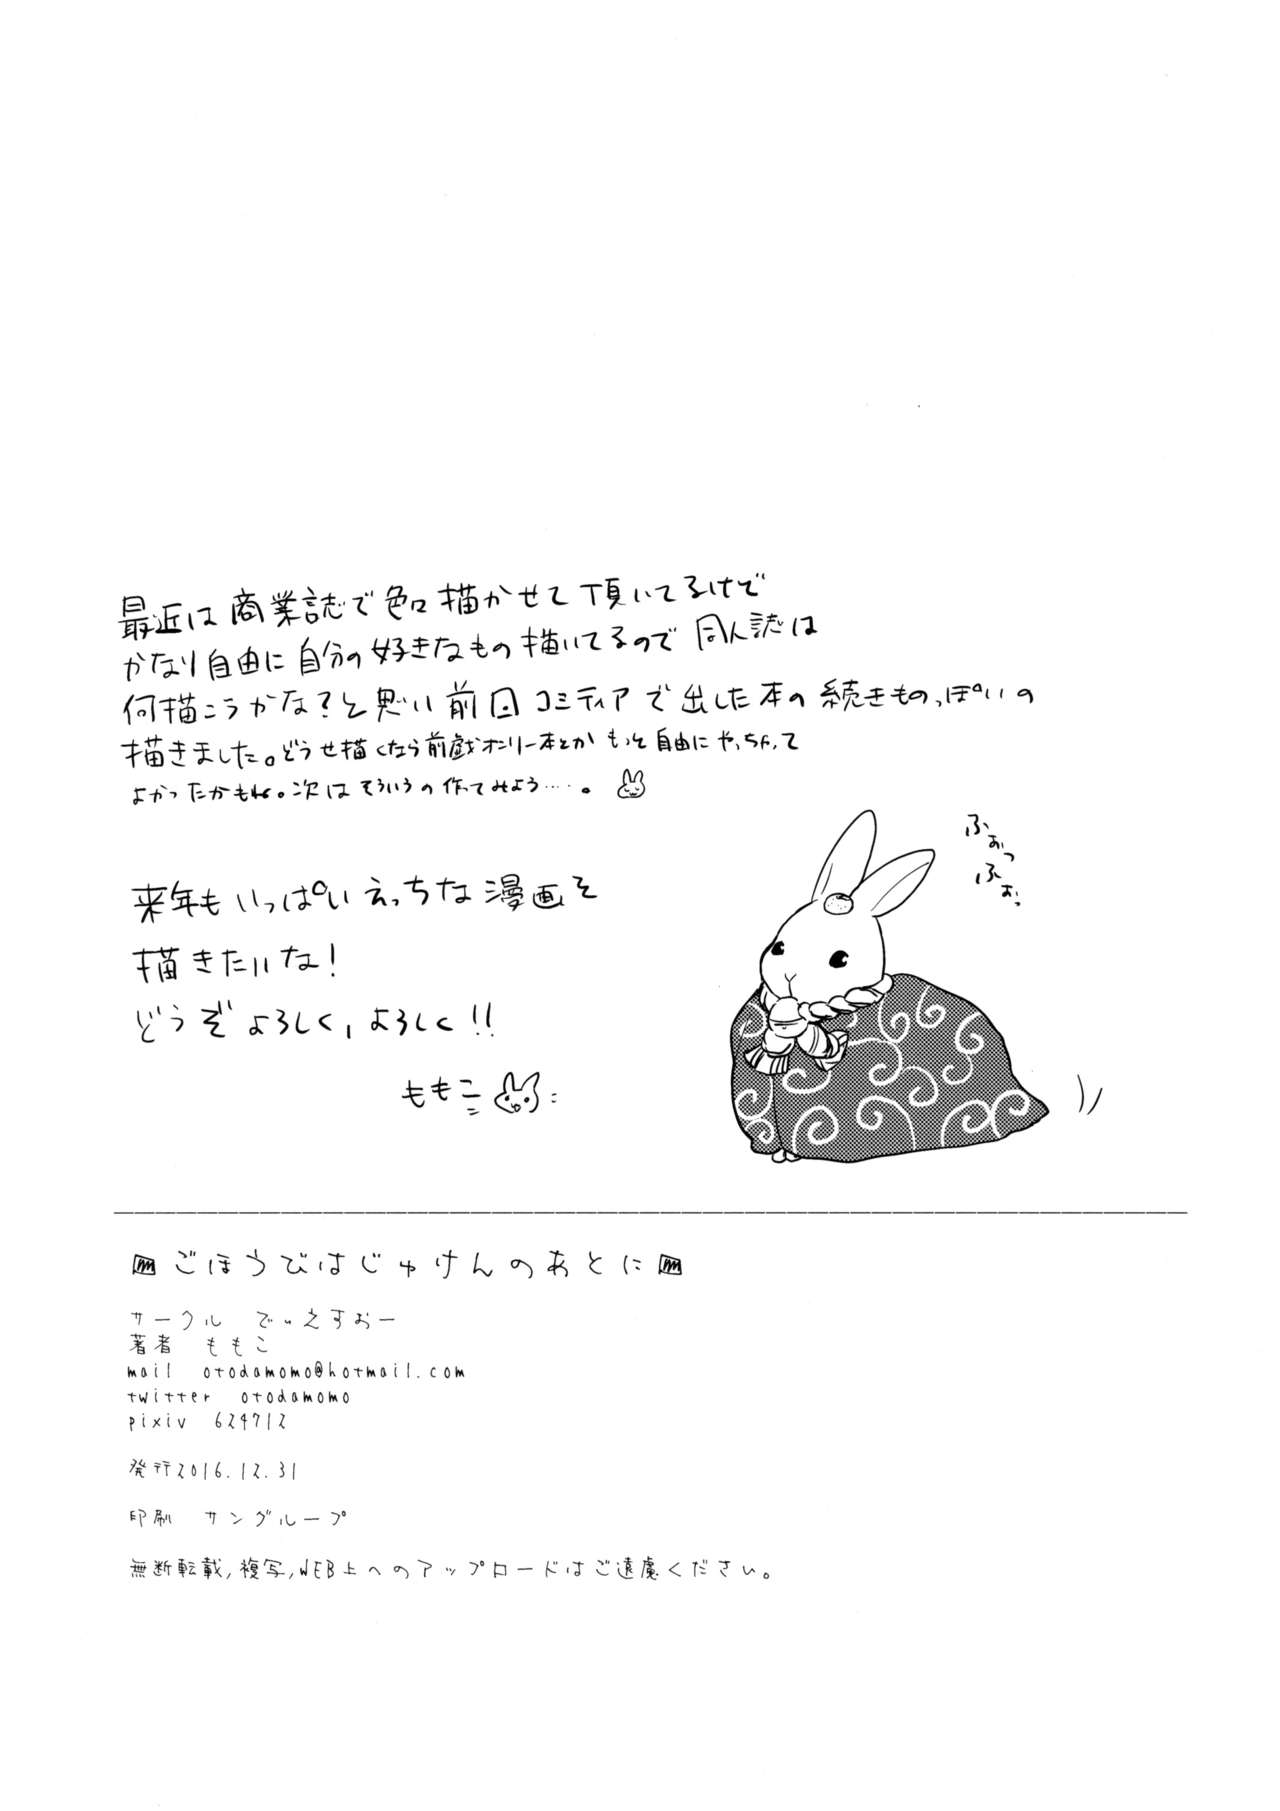 最近は商業誌で色々描かせて頂いてるけど
かなり自由に自分の好きなもの描いてるので同人誌は
何描こうかな?と思い前回コミティアで出した本の続きものっぽいの
描きました。どうせ描くなら前戯オンリー本とかもっと自由にやっちゃって
よかったかもね。次はそういうの作ってみよう…。
ふぉっ
ふぉっ
来年もいっぱいえっちな漫画を
描きたいな!
どうぞよろしく,よろしく!!
ももこ
ごほうびはじゅけんのあとに
サークル でぃえすおー
著者 ももこ
mail otodamomo@hotmail.com
twitter otodamomo
pixiv 624712
発行2016.12.31
印刷 サングループ
無断転載,複写,WEB上へのアップロードはご遠慮ください。